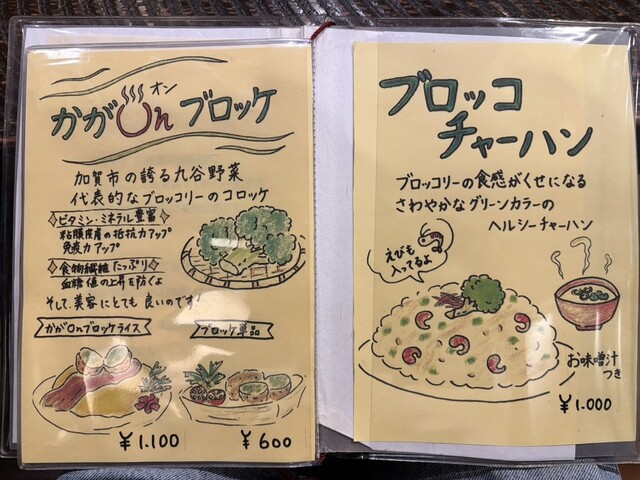 オン
かがOnブロッケ
加賀市の誇る九谷野菜
代表的なブロッコリーのコロッケ
ビタミン・ミネラル豊富
粘膜皮膚の抵抗力アップ
免疫力アップ
食物繊維たっぷり
血糖値の上昇を防ぐよ
そして、美容にとても良いのです!
かがOnブロッケライス
ブロッケ単品
¥1.100
¥600
ブロッコ
チャーハン
ブロッコリーの食感がくせになる
さわやかなグリーンカラーの
ヘルシーチャーハン
えびも
入ってるよ
お味噌汁
つき
¥1.000